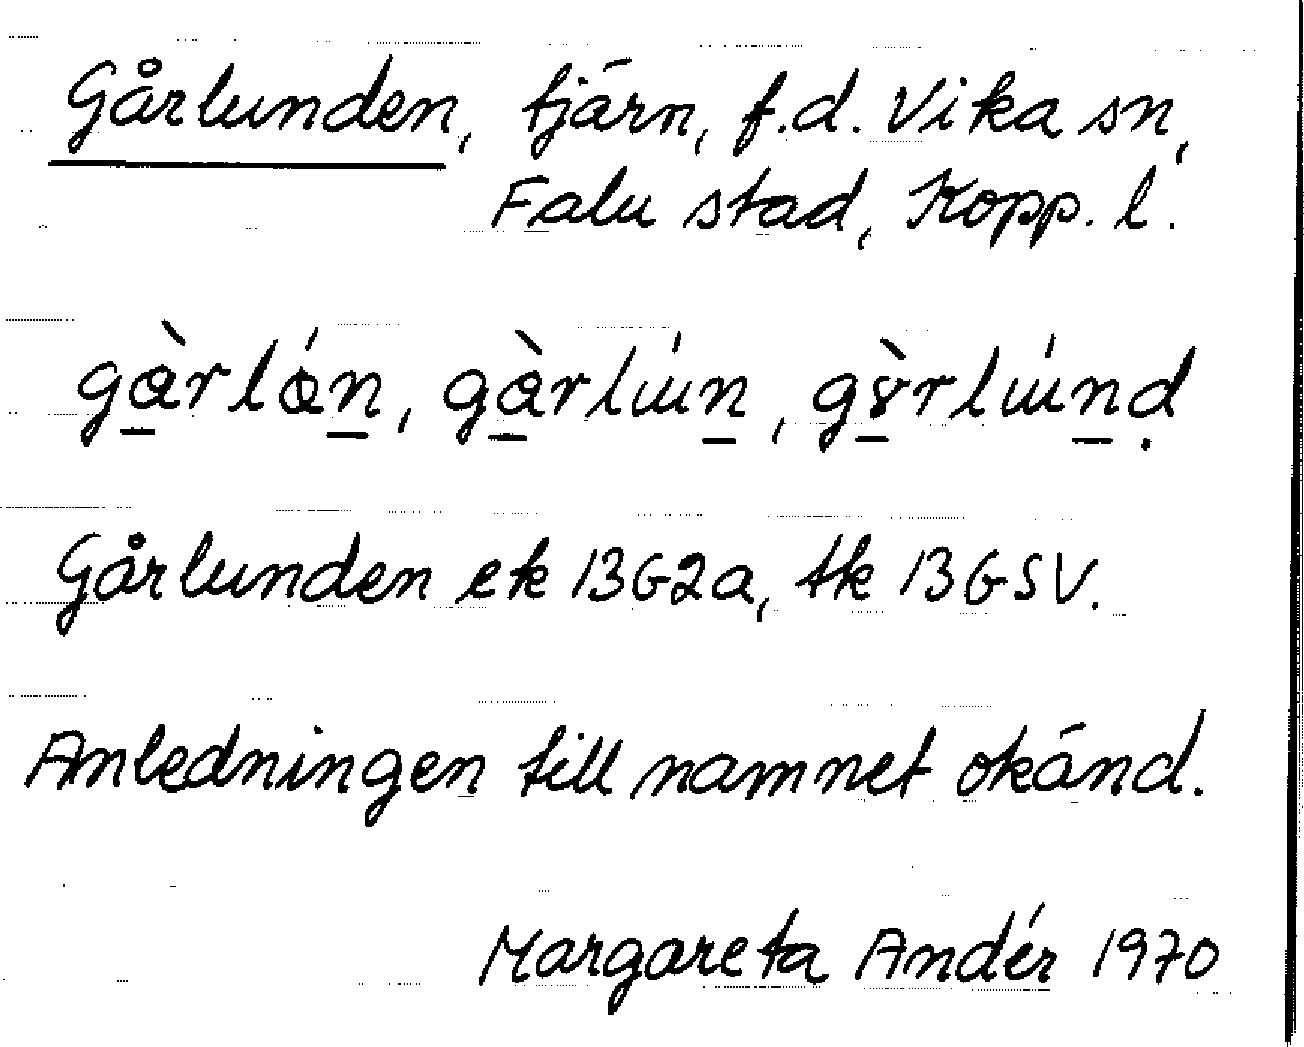 Gårlunden, tjärn, f.d. Vika sn,
Falu stad, Kopp. l.
gàrlón, gàrlúın, gòrlúınd.
Gårlunden ek 13G2a, tk 13GSV.
Anledningen till namnet okänd.
Margareta Andér 1970